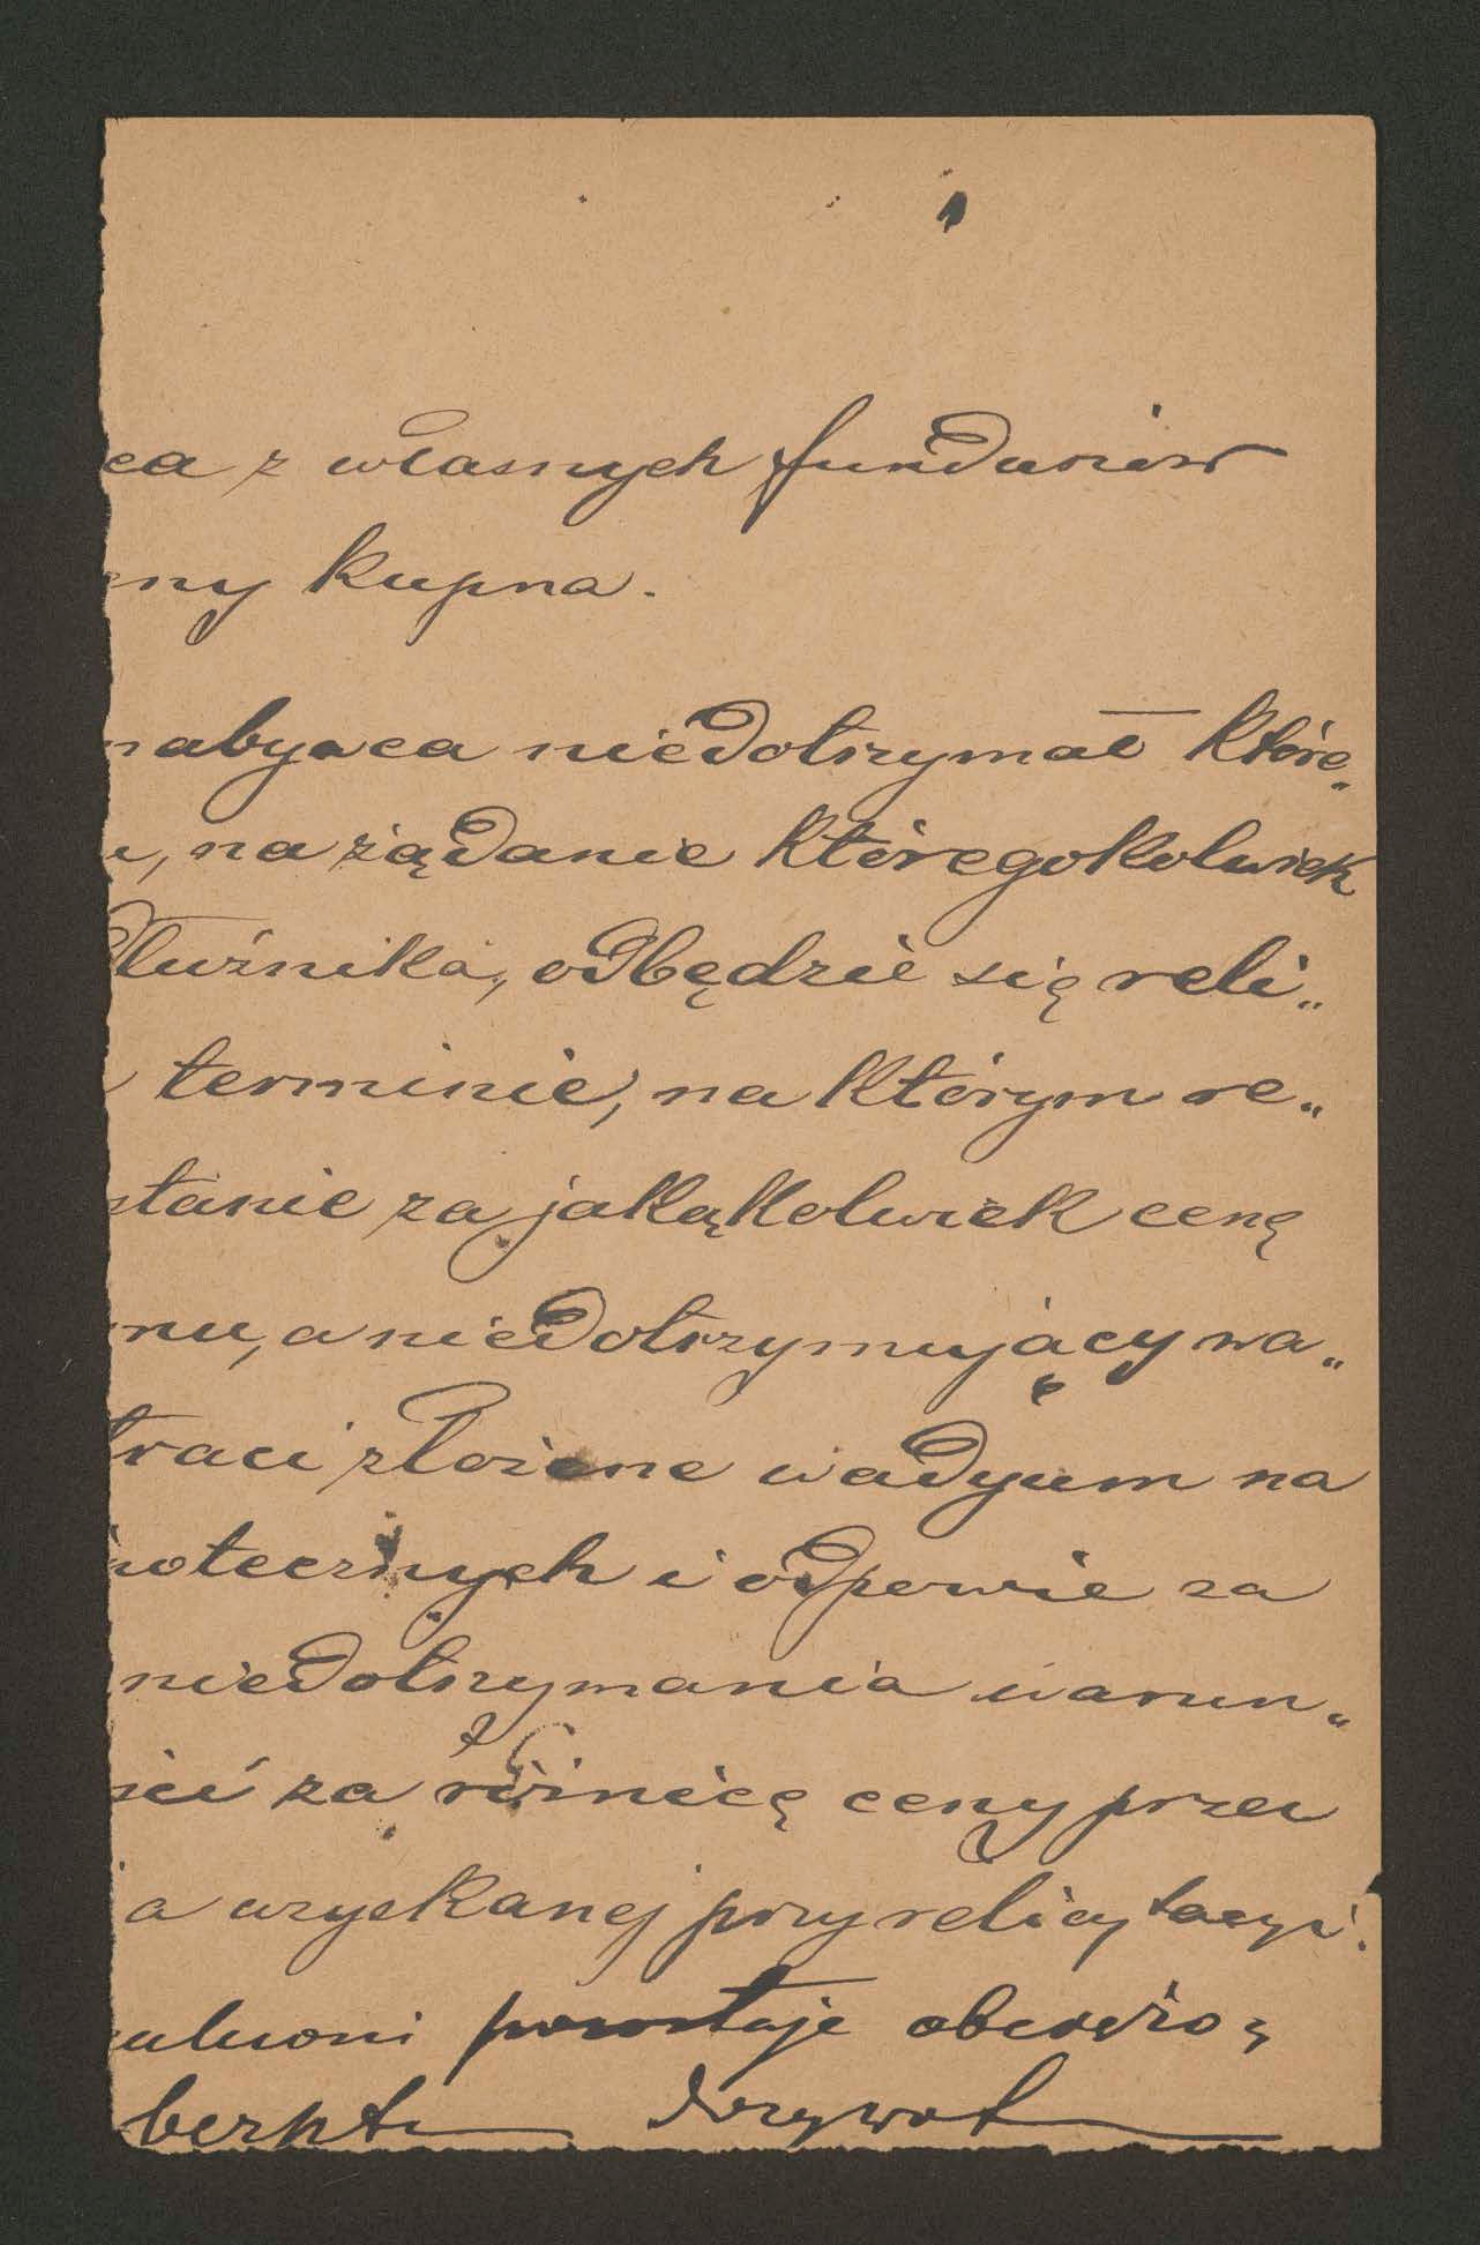 ca z własnych funduszów
ny kupna.
nabywca niedotrzymał które„
, na żądanie któregokolwiek
dłużnika, odbędzie się reli„
terminie, na którym re„
stanie za jakąkolwiek cenę
nu, a niedotrzymujący wa„
traci złożone wadyum na
potecznych i odpowie za
niedotrzymania warun„
za różnicę ceny przez
a uzyskanej przy relicytacyi.
powstaje